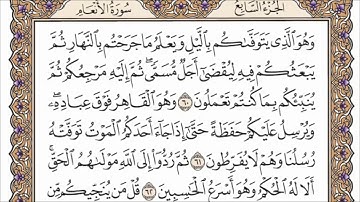 سُورَةُ الأَنْعَامِ
الجُزْءُ السَّابِعُ
وَهُوَ الَّذِي يَتَوَفَّىٰكُم بِالَّيْلِ وَيَعْلَمُ مَا جَرَحْتُم بِالنَّهَارِ ثُمَّ
يَبْعَثُكُمْ فِيهِ لِيُقْضَىٰ أَجَلٌ مُّسَمًّى ثُمَّ إِلَيْهِ مَرْجِعُكُمْ ثُمَّ
يُنَبِّئُكُم بِمَا كُنتُمْ تَعْمَلُونَ ٦٠ وَهُوَ الْقَاهِرُ فَوْقَ عِبَادِهِ
وَيُرْسِلُ عَلَيْكُمْ حَفَظَةً حَتَّىٰ إِذَا جَاءَ أَحَدَكُمُ الْمَوْتُ تَوَفَّتْهُ
رُسُلُنَا وَهُمْ لَا يُفَرِّطُونَ ٦١ ثُمَّ رُدُّوا إِلَى اللَّهِ مَوْلَىٰهُمُ الْحَقِّ
أَلَا لَهُ الْحُكْمُ وَهُوَ أَسْرَعُ الْحَاسِبِينَ ٦٢ قُلْ مَن يُنَجِّيكُم مِّن